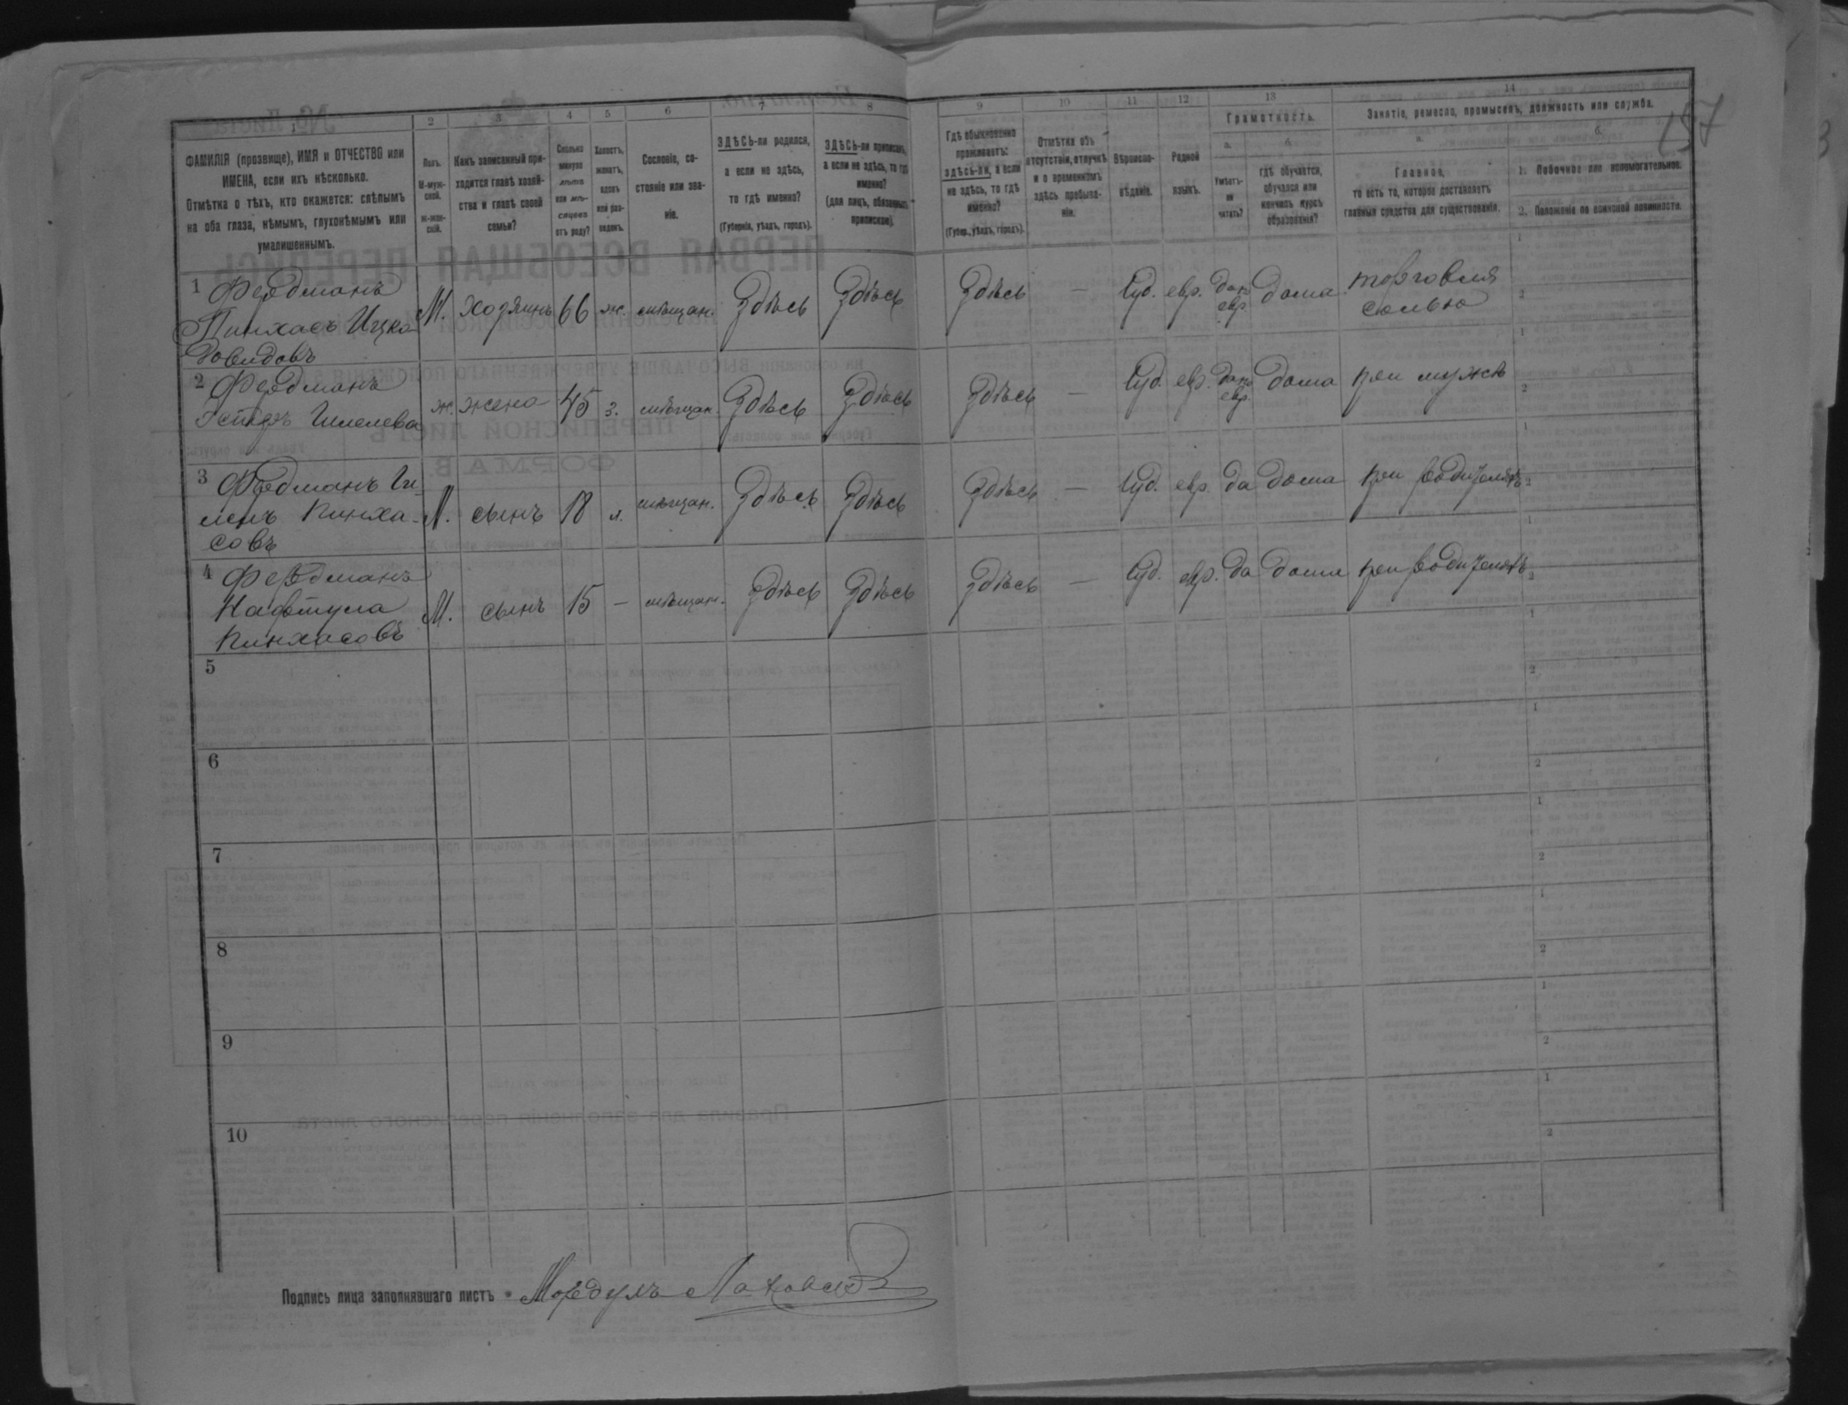 157
1 2 3 4 5 6 7 8 9 10 11 12 13 14
ФАМИЛІЯ (прозвище), ИМЯ и ОТЧЕСТВО или
ИМЕНА, если ихъ нѣсколько.
Отмѣтка о тѣхъ, кто окажется: слѣпымъ
на оба глаза, нѣмымъ, глухонѣмымъ или
умалишеннымъ.
Полъ.
М-муж-
ской.
Ж-жен-
скій.
Какъ записанный при-
ходится главѣ хозяй-
ства и главѣ своей
семьи?
Сколько
минуло
лѣтъ
или мѣ-
сяцевъ
отъ роду?
Холостъ,
женатъ,
вдовъ
или раз-
веденъ.
Сословіе, со-
стояніе или зва-
ніе.
ЗДѢСЬ-ли родился,
а если не здѣсь,
то гдѣ именно?
(Губернія, уѣздъ, городъ).
ЗДѢСЬ-ли приписанъ,
а если не здѣсь, то гдѣ
именно?
(для лицъ, обязанныхъ
припиской).
Гдѣ обыкновенно
проживаетъ:
здѣсь-ли, а если
не здѣсь, то гдѣ
именно?
(Губер., уѣздъ, городъ).
Отмѣтка объ
отсутствіи, отлучкѣ
и о временномъ
здѣсь пребыва-
ніи.
Вѣроиспо-
вѣданіе.
Родной
языкъ.
Грамотность.
а.
Умѣетъ-
ли
читать?
б.
гдѣ обучается,
обучался или
кончилъ курсъ
образованія?
Занятіе, ремесло, промыселъ, должность или служба.
а.
Главное,
то есть то, которое доставляетъ
главныя средства для существованія.
б.
1. Побочное или вспомогательное.
2. Положеніе по воинской повинности.
1 Фердманъ
Пинхасъ Ицко
Довидовъ
М. хозяинъ 66 ж. мѣщан. Здѣсь Здѣсь Здѣсь — Іуд. евр. да по евр. дома торговля
солью
2 Фердманъ
Эстеръ Шмелева
ж. жена 45 з. мѣщан. Здѣсь Здѣсь Здѣсь — Іуд. евр. да по евр. дома при мужѣ
3 Фердманъ
Пинха-
совъ
М. сынъ 18 х. мѣщан. Здѣсь Здѣсь Здѣсь — Іуд. евр. да дома при родителяхъ
4 Фердманъ
Нафтула
Пинхасовъ
М. сынъ 15 — мѣщан. Здѣсь Здѣсь Здѣсь — Іуд. евр. да дома при родителяхъ
5
6
7
8
9
10
Подпись лица заполнявшаго листъ